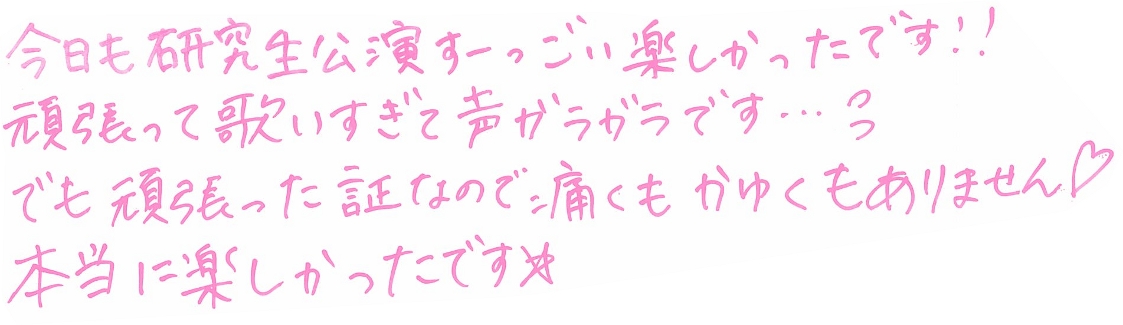 今日も研究生公演すーっごい楽しかったです!!
頑張って歌いすぎて声ガラガラです…
でも頑張った証なので痛くもかゆくもありません♡
本当に楽しかったです☆